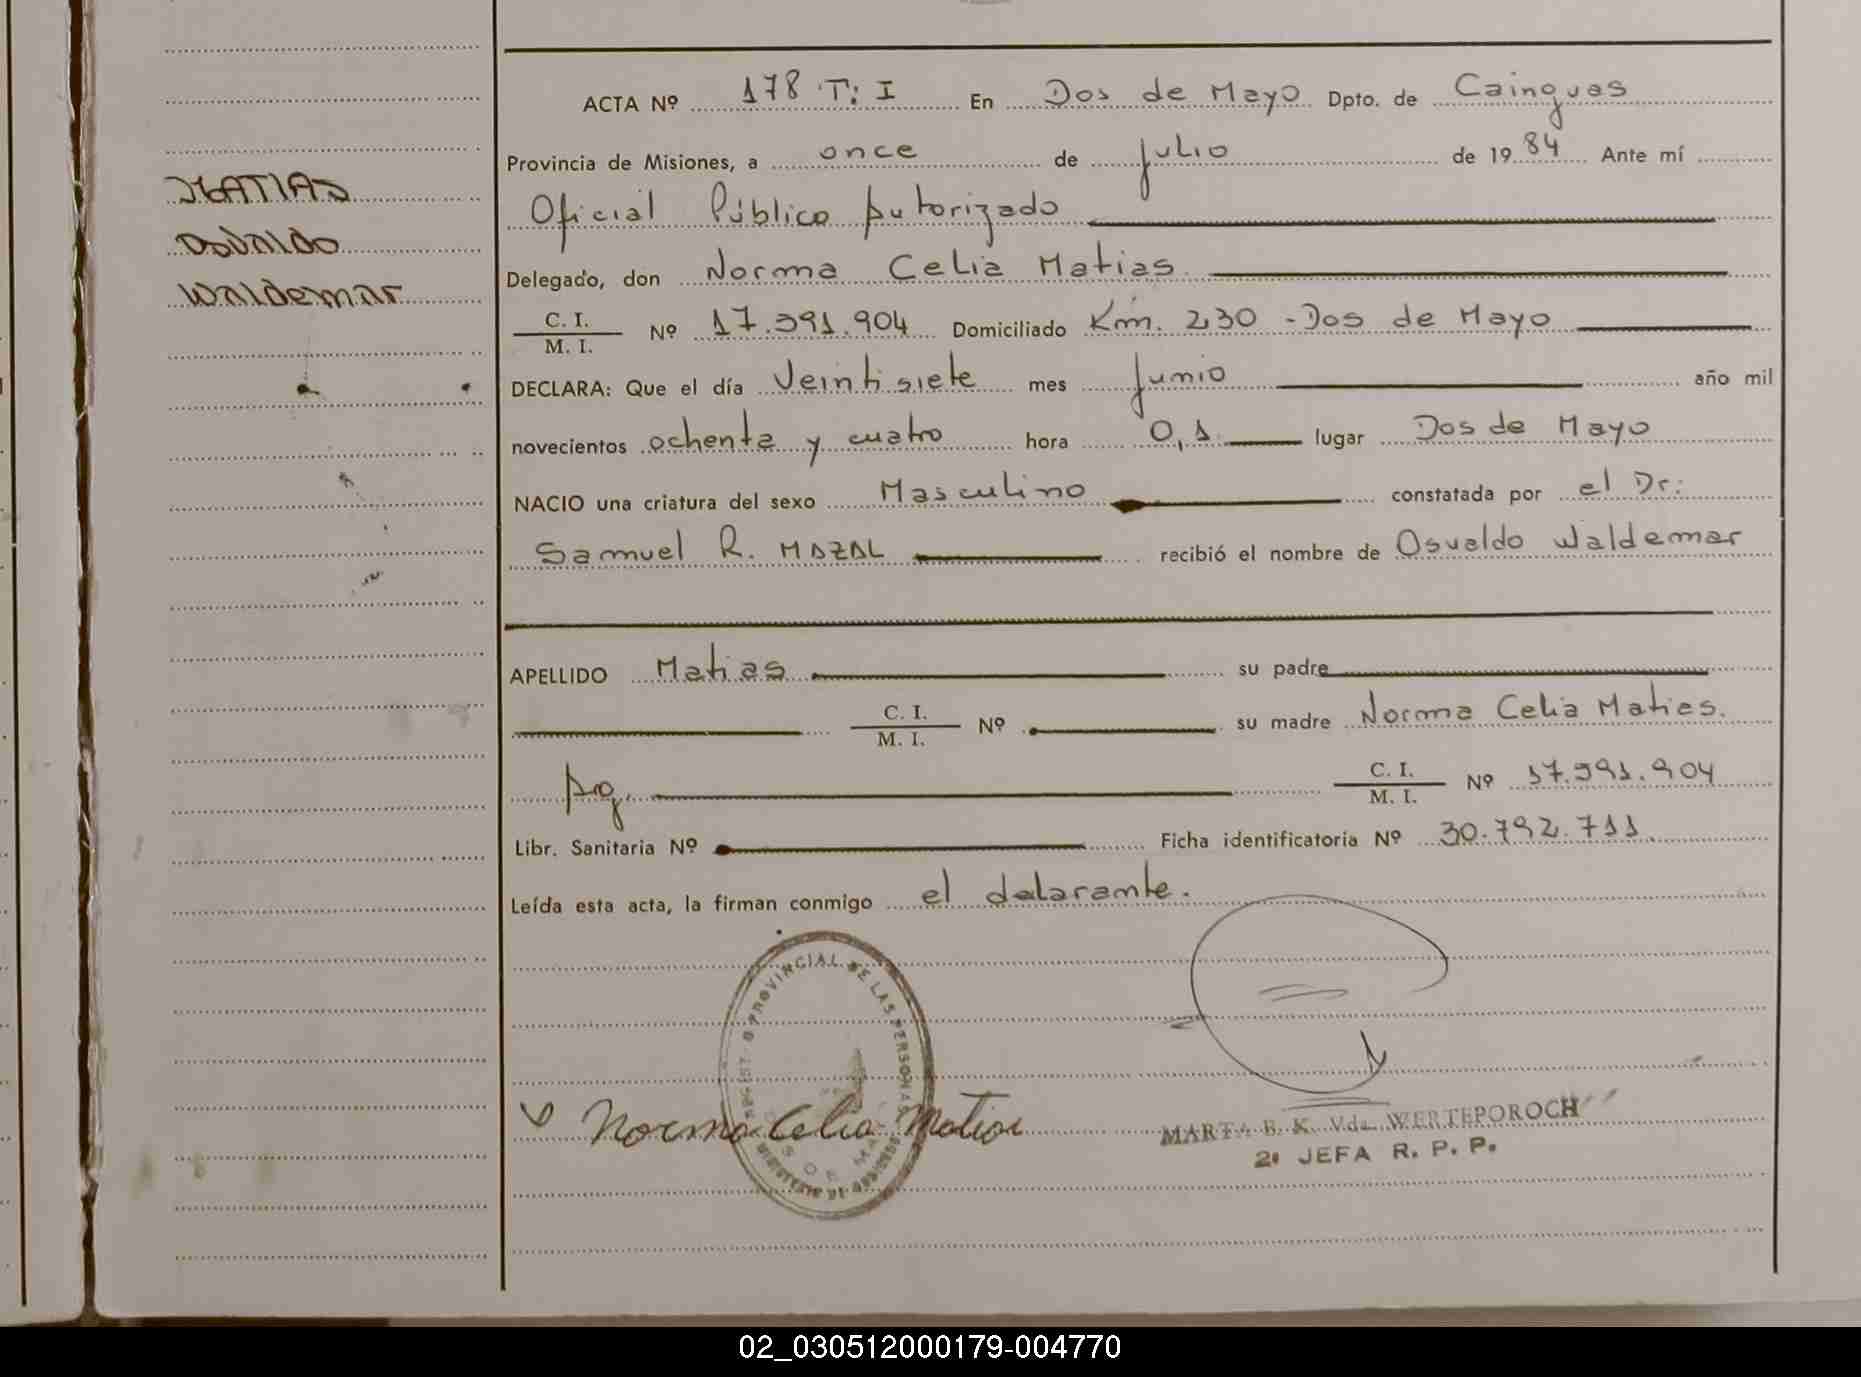 ACTA Nº 178 T: I En Dos de Mayo Dpto. de Cainguas
Provincia de Misiones, a once de julio de 1984 Ante mí
Oficial Público Autorizado
Delegado, don Norma Celia Matias
C. I.
M. I. Nº 17.391.904 Domiciliado Km. 230 - Dos de Mayo
DECLARA: Que el día Veintisiete mes junio año mil
novecientos ochenta y cuatro hora 0,1 lugar Dos de Mayo
NACIO una criatura del sexo Masculino constatada por el Dr:
Samuel R. MAZAL recibió el nombre de Osvaldo Waldemar
APELLIDO Matias su padre
C. I.
M. I. Nº su madre Norma Celia Matias.
Arg. C. I.
M. I. Nº 17.391.904
Libr. Sanitaria Nº Ficha identificatoria Nº 30.792.711
Leída esta acta, la firman conmigo el delarante.
MATIAS
Osvaldo
Waldemar
PROVINCIAL DE LAS PERSONAS
Norma Celia Matias
MARTA B. K. Vda. WERTEPOROCH
2º JEFA R. P. P.
02_030512000179-004770